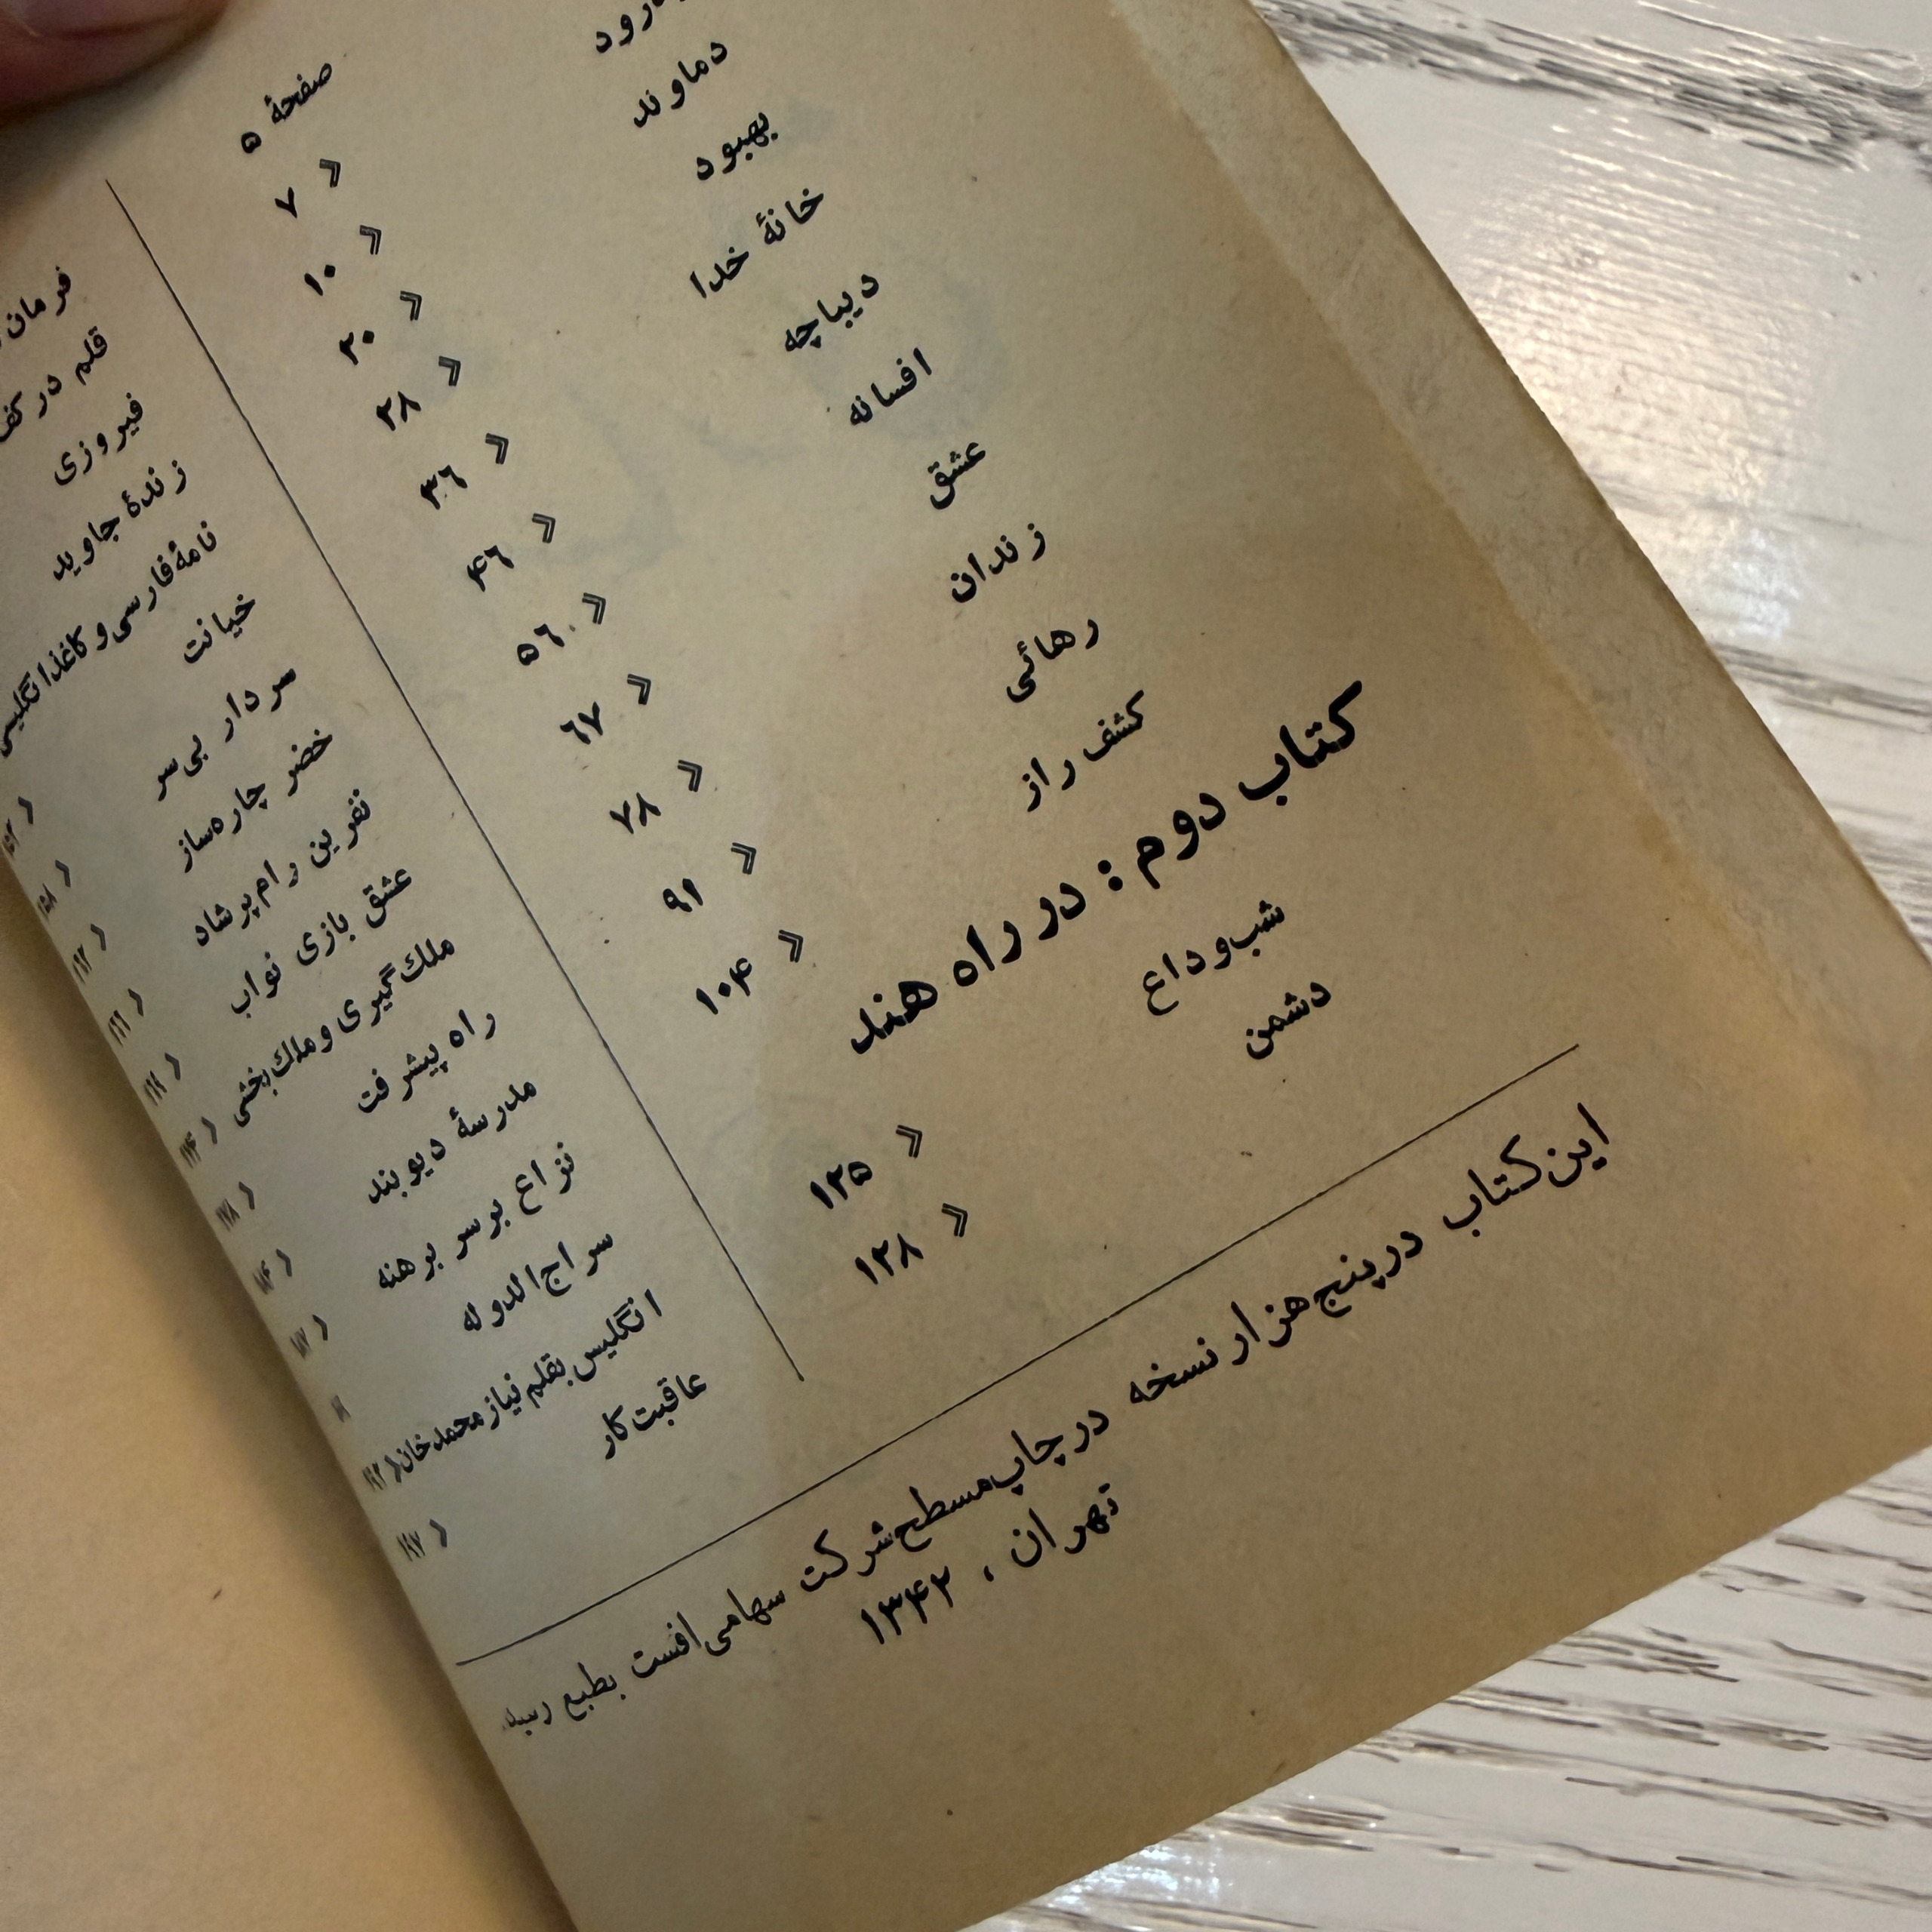 صفحهٔ ۵
« ۷
« ۱۰
دماوند « ۲۰
بهبود « ۲۸
خانهٔ خدا « ۳۶
دیباچه « ۴۶
افسانه « ۵۶
عشق « ۶۷
زندان « ۷۸
رهائی « ۹۱
کشف راز « ۱۰۴
کتاب دوم : در راه هند
شب وداع « ۱۲۵
دشمن « ۱۲۸
فرمان
قلم در کف
فیروزی
زندهٔ جاوید
نامهٔ فارسی و کاغذ انگلیسی
خیانت
سردار بی‌سر
خضر چاره‌ساز
نفرین رام‌پرشاد
عشق بازی نواب
ملك گیری و ملك بخشی
راه پیشرفت
مدرسهٔ دیوبند
نزاع بر سر برهنه
سراج‌الدوله
انگلیس بقلم نیاز محمدخان « ۱۹۲
عاقبت کار « ۱۹۷
این کتاب در پنج هزار نسخه در چاپ مسطح شرکت سهامی افست بطبع رسید.
تهران ، ۱۳۴۲